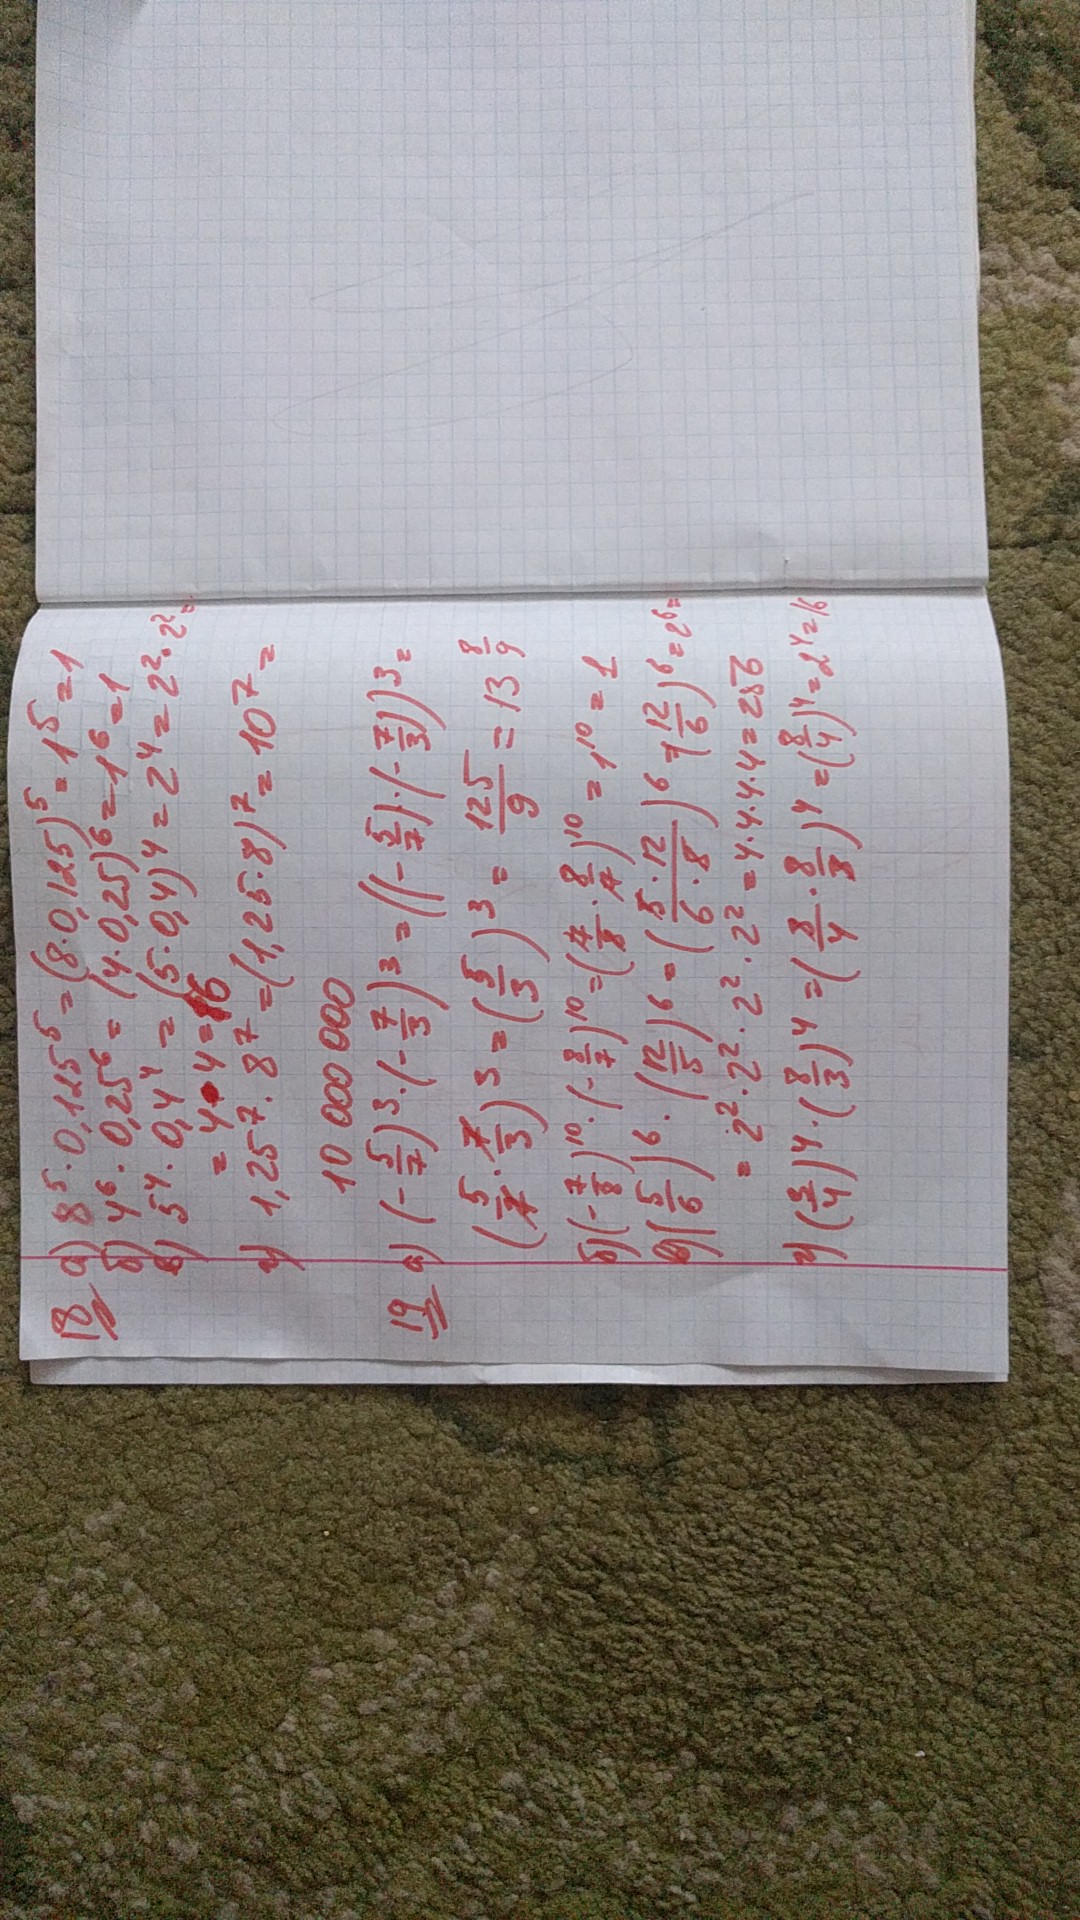 18 а) 8⁵ · 0,125⁵ = (8 · 0,125)⁵ = 1⁵ = 1
б) 4⁶ · 0,25⁶ = (4 · 0,25)⁶ = 1⁶ = 1
в) 5⁴ · 0,4⁴ = (5 · 0,4)⁴ = 2⁴ = 2² · 2² =
= 4 · 4 = 16
г) 1,25⁷ · 8⁷ = (1,25 · 8)⁷ = 10⁷ =
10 000 000
19 а) (-5/7)³ · (-7/3)³ = ((-5/7) · (-7/3))³ =
(5/7 · 7/3)³ = (5/3)³ = 125/9 = 13 8/9
б) (-7/8)¹⁰ · (-8/7)¹⁰ = (7/8 · 8/7)¹⁰ = 1¹⁰ = 1
в) (5/6)⁶ · (12/5)⁶ = (5 · 12/6 · 8)⁶ = (12/6)⁶ = 2⁶ =
= 2² · 2² · 2² · 2² = 4 · 4 · 4 · 4 = 256
г) (3/4)⁴ · (8/3)⁴ = (8/4 · 8/3)⁴ = (8/4)⁴ = 2⁴ = 16